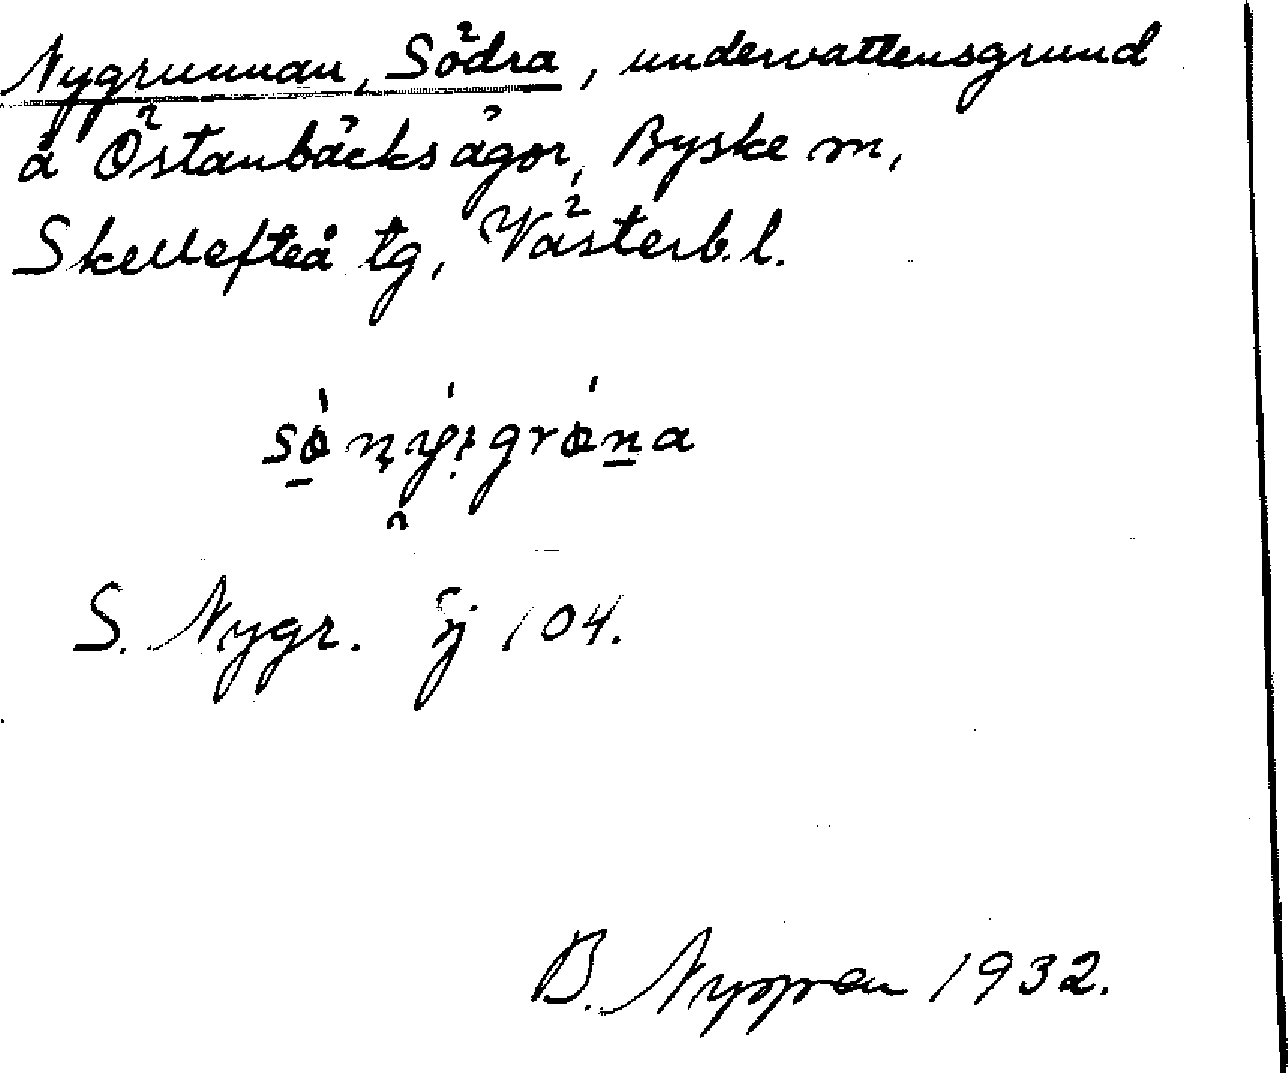 Nygrunnan, Södra, undervattensgrund
å Östanbäcks ägor, Byske sn,
Skellefteå tg, Västerb. l.
S. Nygr. Sj 104.
B. Nyman 1932.